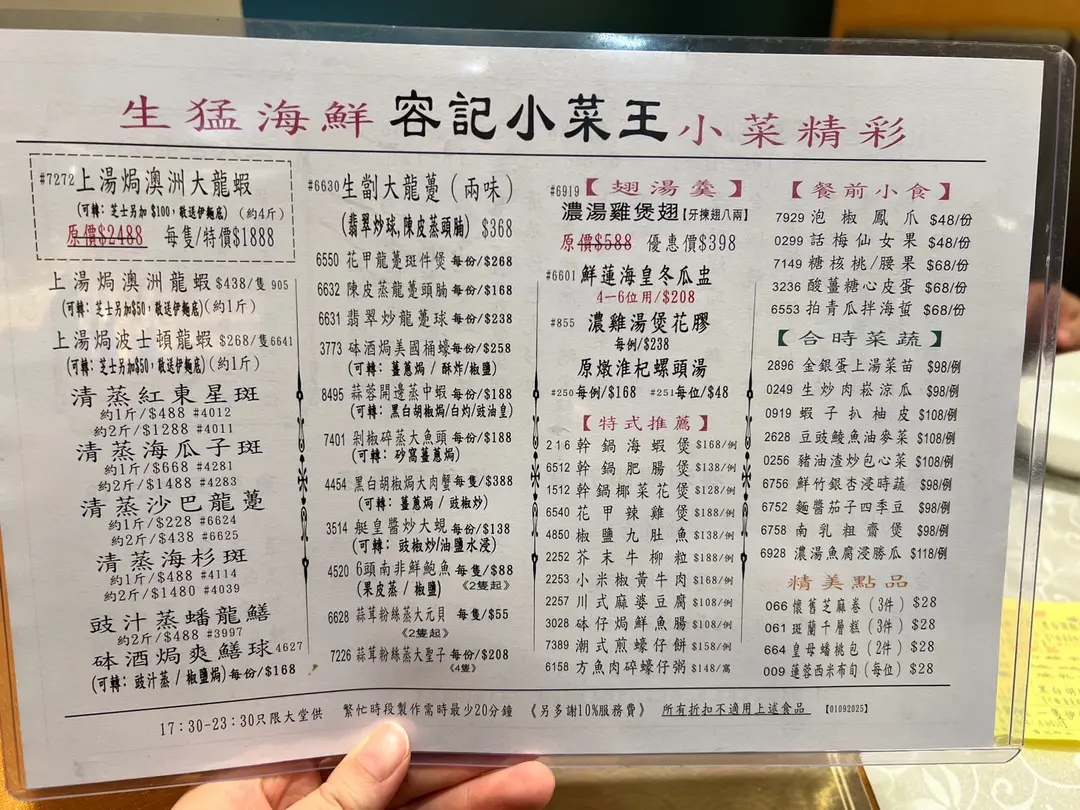 生猛海鮮 容記小菜王 小菜精彩
#7272上湯焗澳洲大龍蝦
(可轉: 芝士另加 $100, 敬送伊麵底) (約4斤)
原價$2488 每隻/特價$1888
上湯焗澳洲龍蝦 $438/隻 905
(可轉: 芝士另加$50, 敬送伊麵底) (約1斤)
上湯焗波士頓龍蝦 $268/隻6641
(可轉: 芝士另加$50, 敬送伊麵底) (約1斤)
清蒸紅東星斑
約1斤/$488 #4012
約2斤/$1288 #4011
清蒸海瓜子斑
約1斤/$668 #4281
約2斤/$1488 #4283
清蒸沙巴龍躉
約1斤/$228 #6624
約2斤/$438 #6625
清蒸海杉斑
約1斤/$488 #4114
約2斤/$1480 #4039
豉汁蒸蟠龍鱔
約2斤/$488 #3997
砵酒焗爽鱔球4627
(可轉: 豉汁蒸 / 椒鹽焗) 每份/$168
#6630生劏大龍躉 (兩味)
(翡翠炒球, 陳皮蒸頭腩) $368
6550 花甲龍躉斑件煲 每份/$268
6632 陳皮蒸龍躉頭腩 每份/$168
6631 翡翠炒龍躉球 每份/$238
3773 砵酒焗美國桶蠔 每份/$258
(可轉: 薑蔥焗 / 酥炸/椒鹽)
8495 蒜蓉開邊蒸中蝦 每份/$188
(可轉: 黑白胡椒焗/白灼/豉油皇)
7401 剁椒碎蒸大魚頭 每份/$188
(可轉: 砂窩薑蔥焗)
4454 黑白胡椒焗大肉蟹 每隻/$388
(可轉: 薑蔥焗 / 豉椒炒)
3514 艇皇醬炒大蜆 每份/$138
(可轉: 豉椒炒/油鹽水浸)
4520 6頭南非鮮鮑魚 每隻/$88
(果皮蒸 / 椒鹽) 《2隻起》
6628 蒜茸粉絲蒸大元貝 每隻/$55
《2隻起》
7226 蒜茸粉絲蒸大聖子 每份/$208
《4隻》
#6919【翅湯羹】
濃湯雞煲翅【牙揀翅八兩】
原價$588 優惠價$398
#6601 鮮蓮海皇冬瓜盅
4-6位用/$208
#855 濃雞湯煲花膠
每例/$238
原燉淮杞螺頭湯
#250每例/$168 #251每位/$48
【特式推薦】
216 幹鍋海蝦煲 $168/例
6512 幹鍋肥腸煲 $138/例
1512 幹鍋椰菜花煲 $128/例
6540 花甲辣雞煲 $188/例
4850 椒鹽九肚魚 $138/例
2252 芥末牛柳粒 $188/例
2253 小米椒黃牛肉 $168/例
2257 川式麻婆豆腐 $108/例
3028 砵仔焗鮮魚腸 $108/例
7389 潮式煎蠔仔餅 $158/例
6158 方魚肉碎蠔仔粥 $148/窩
【餐前小食】
7929 泡椒鳳爪 $48/份
0299 話梅仙女果 $48/份
7149 糖核桃/腰果 $68/份
3236 酸薑糖心皮蛋 $68/份
6553 拍青瓜拌海蜇 $68/份
【合時菜蔬】
2896 金銀蛋上湯菜苗 $98/例
0249 生炒肉崧涼瓜 $98/例
0919 蝦子扒柚皮 $108/例
2628 豆豉鯪魚油麥菜 $108/例
0256 豬油渣炒包心菜 $108/例
6756 鮮竹銀杏浸時蔬 $98/例
6752 麵醬茄子四季豆 $98/例
6758 南乳粗齋煲 $98/例
6928 濃湯魚腐浸勝瓜 $118/例
精美點品
066 懷舊芝麻卷 (3件) $28
061 斑蘭千層糕 (3件) $28
664 皇母蟠桃包 (2件) $28
009 蓮蓉西米布甸 (每位) $28
17:30-23:30只限大堂供 繁忙時段製作需時最少20分鐘 《另多謝10%服務費》 所有折扣不適用上述食品 【01092025】